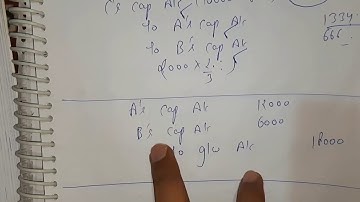 C's Cap A/c
To A's Cap A/c
To B's Cap A/c
2000 × 2/3
1334
666
A's Cap A/c 12000
B's Cap A/c 6000
To g/w A/c 18000